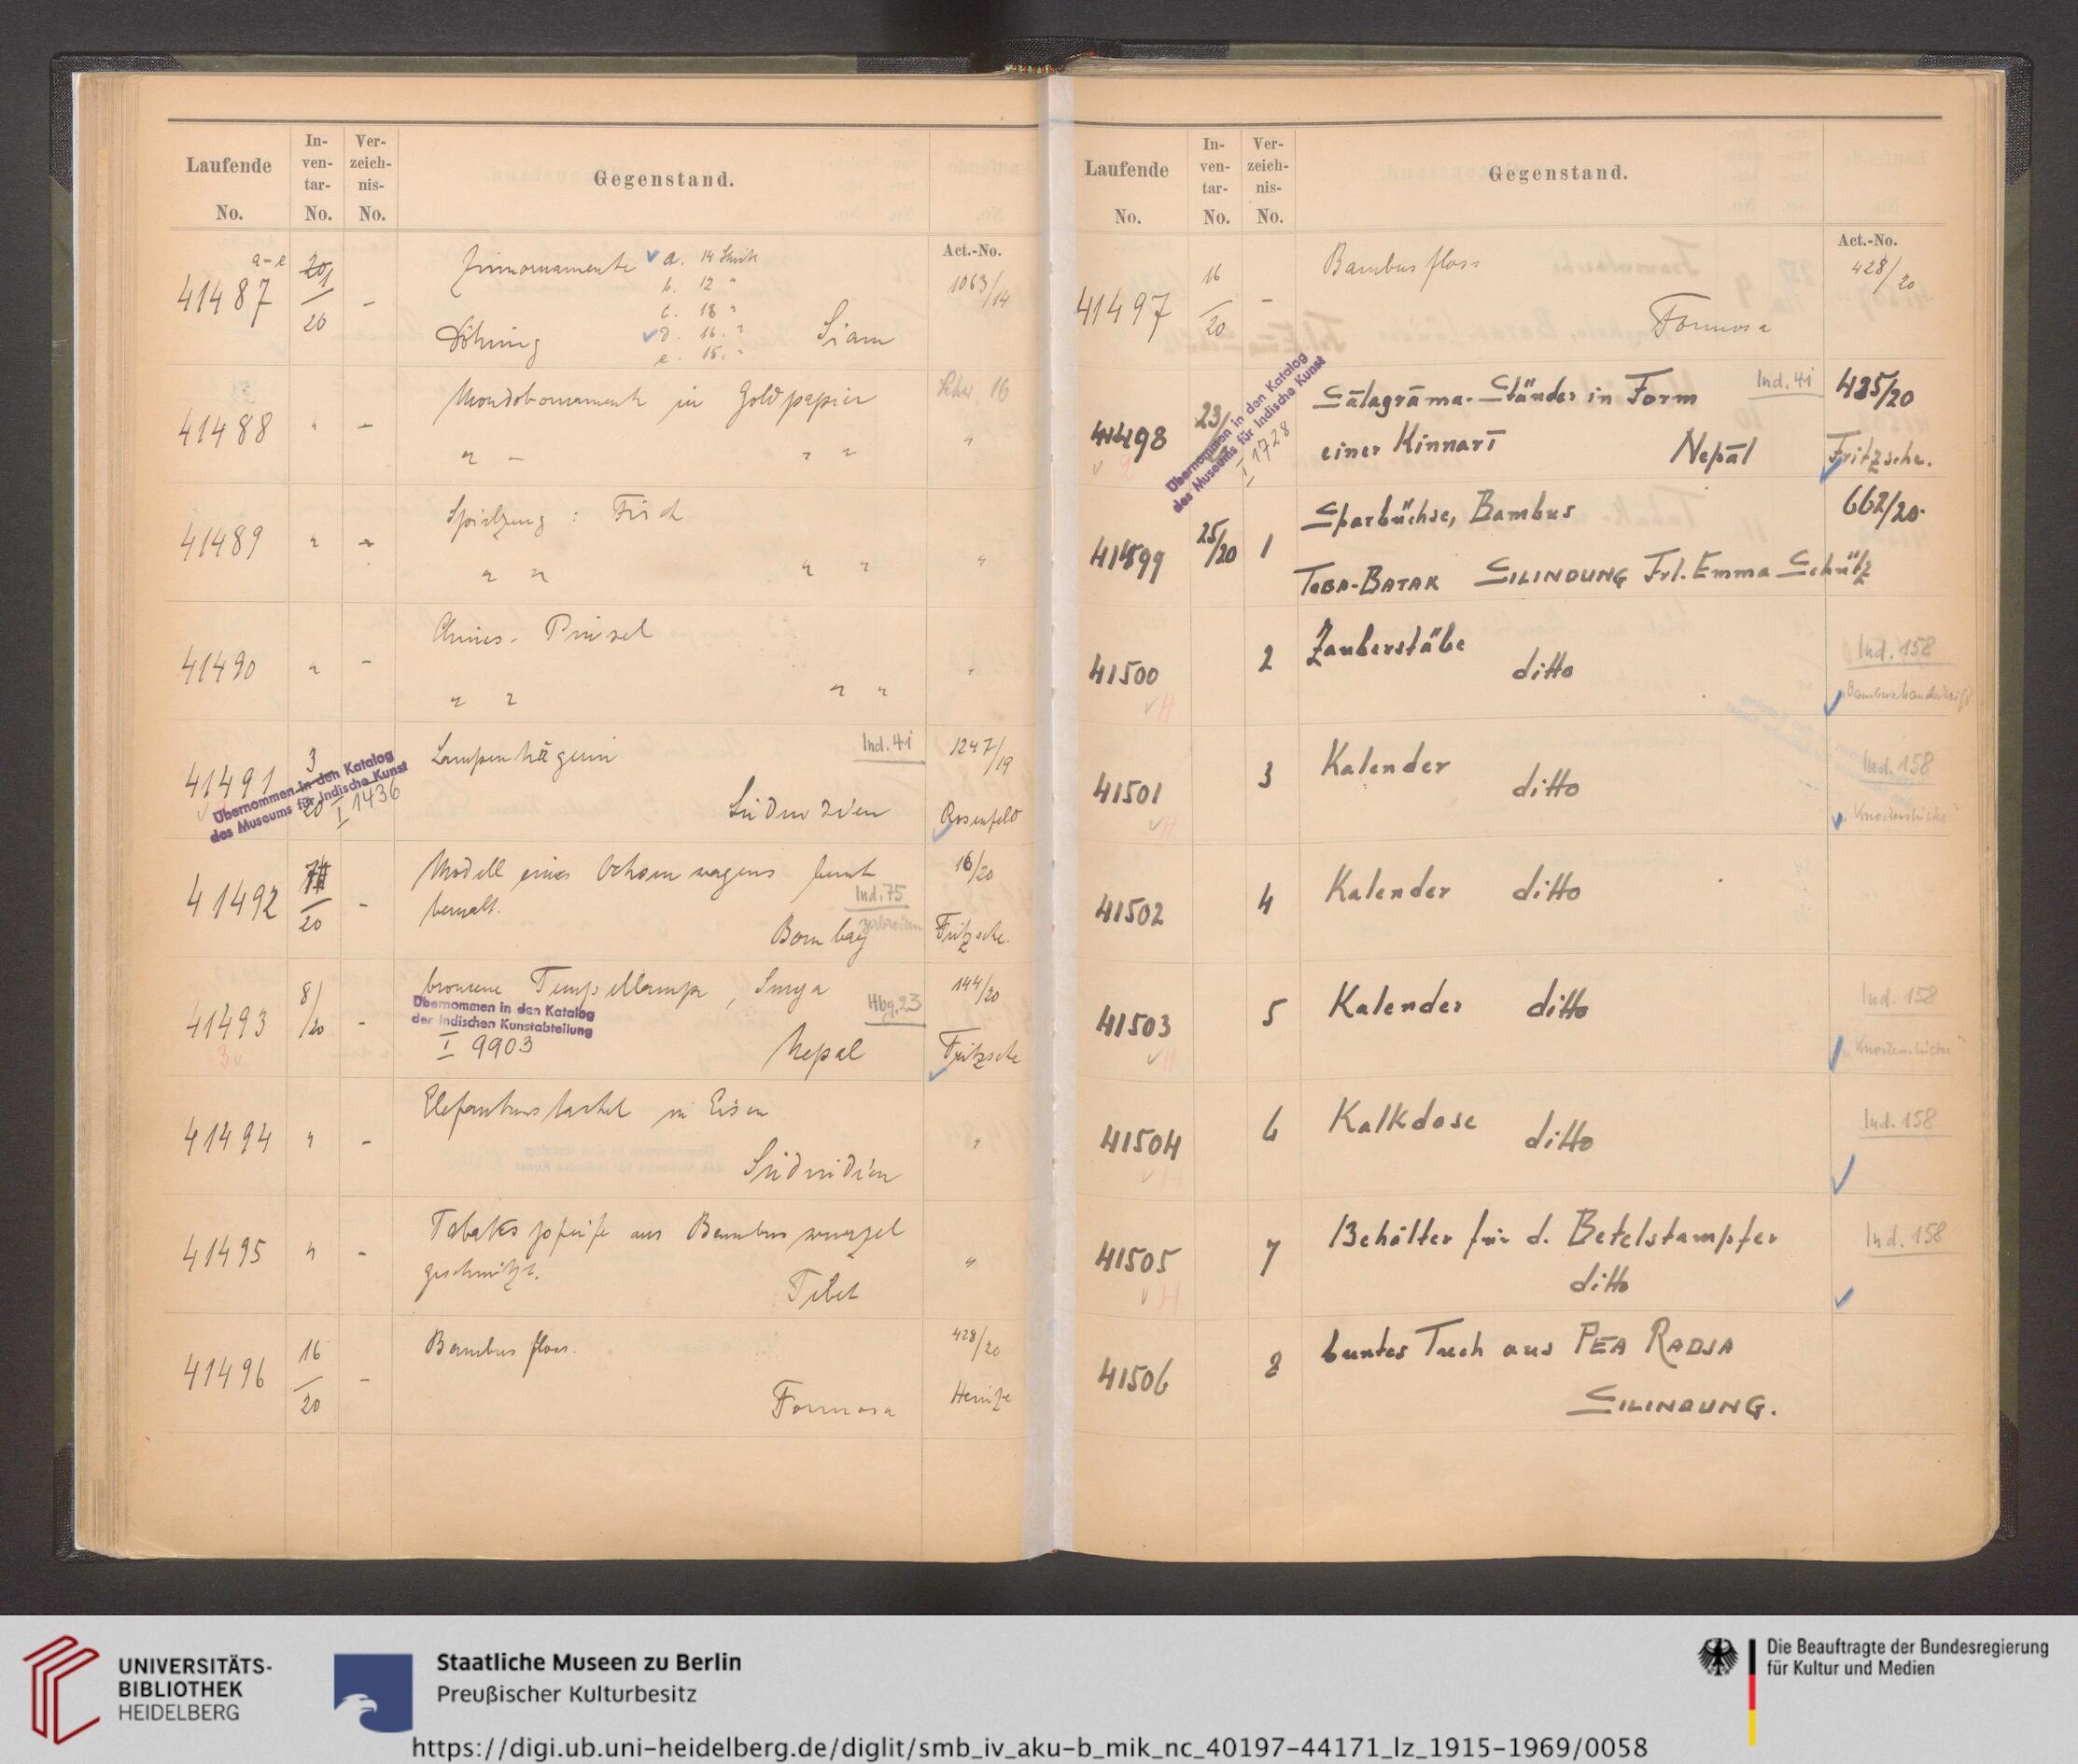 Laufende No.
In-ven-tar-No.
Ver-zeich-nis-No.
Gegenstand.
Act.-No.
41487 a-e
20
Zinnornamente a. 14 Stück
b. 12 "
c. 18 "
d. 16. "
e. 15. "
Döhring Siam
1063/14
41488 " –
in Goldpapier
" – " "
"
41489 " "
Spielzeug : Fisch
" " " "
"
41490 " –
Chines. Pinsel
" " " "
"
41491 3/20
Lampenträgerin
Ind. 41
Südindien
1247/19
Rosenfeld
Übernommen in den Katalog
des Museums für Indische Kunst
I 1436
41492
20 –
Modell eines Ochsenwagens bunt
bemalt.
Ind. 75
zerbrochen
Bombay
16/20
Fritzsche.
41493 8/20 –
bronzene Tempellampe, Surya
Übernommen in den Katalog
der Indischen Kunstabteilung
I 9903
Hbg. 23
Nepal
144/20
Fritzsche
41494 " –
Elefantenstachel in Eisen
Südindien
"
41495 " –
Tabakspfeife aus Bambuswurzel
geschnitzt.
Tibet
"
41496 16/20 –
Bambusfloss.
Formosa
428/20
Heintze
Laufende No.
In-ven-tar-No.
Ver-zeich-nis-No.
Gegenstand.
Act.-No.
41497 16/20 –
Bambusfloss
Formosa
428/20
41498 23/
Übernommen in den Katalog
des Museums für Indische Kunst
I 1728
Sālagrāma-Ständer in Form
Ind. 41
einer Kinnarī Nepāl
435/20
Fritzsche.
41499 25/20 1
Sparbüchse, Bambus
662/20.
TOBA-BATAK SILINDUNG Frl. Emma Schütz
41500 2
Zauberstäbe
ditto
Ind. 158
41501 3
Kalender
ditto
Ind. 158
41502 4
Kalender ditto
41503 5
Kalender ditto
Ind. 158
41504 6
Kalkdose
ditto
Ind. 158
41505 7
Behälter für d. Betelstampfer
ditto
Ind. 158
41506 8
buntes Tuch aus PEA RADJA
SILINDUNG.
UNIVERSITÄTS-
BIBLIOTHEK
HEIDELBERG
Staatliche Museen zu Berlin
Preußischer Kulturbesitz
Die Beauftragte der Bundesregierung
für Kultur und Medien
https://digi.ub.uni-heidelberg.de/diglit/smb_iv_aku-b_mik_nc_40197-44171_lz_1915-1969/0058